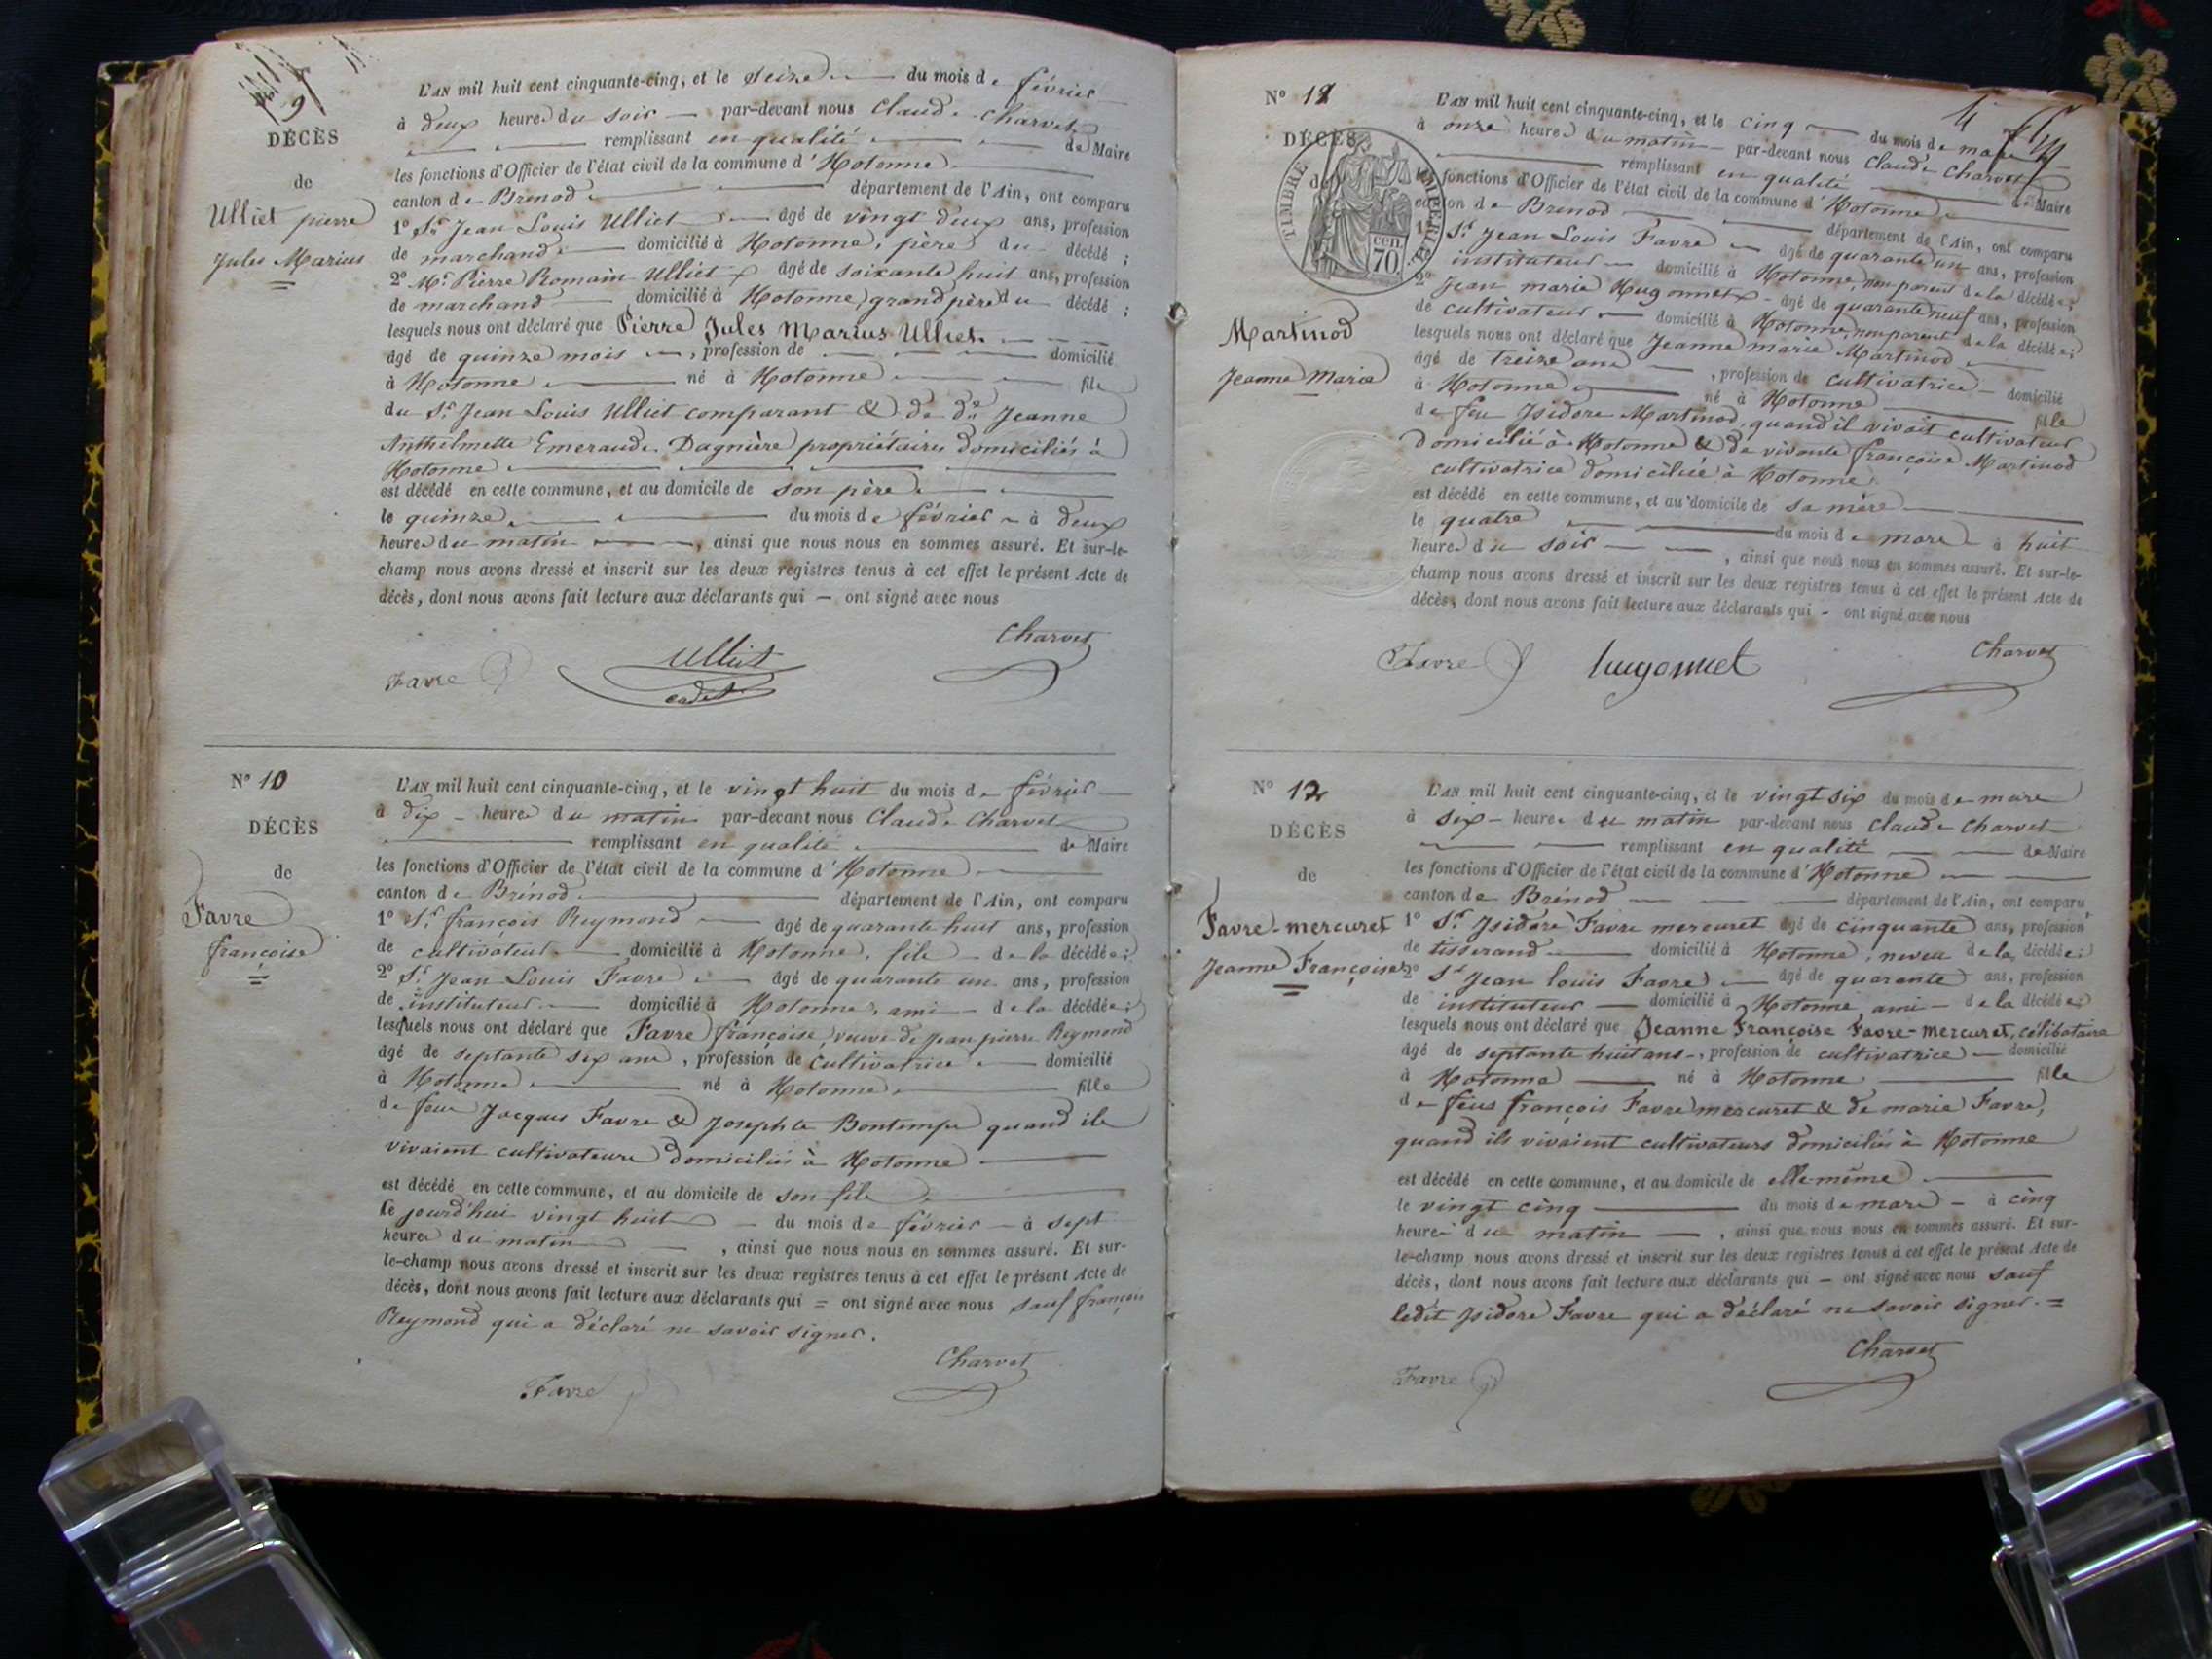 9
DÉCÈS
de
Ulliet pierre
Jules Marius
L'AN mil huit cent cinquante-cinq, et le seize du mois de février
à deux heures du soir par-devant nous Claude Charvet
remplissant en qualité de Maire
les fonctions d'Officier de l'état civil de la commune d'Hotonne
canton de Brénod département de l'Ain, ont comparu
1° Sr. Jean Louis Ulliet âgé de vingt deux ans, profession
de marchand domicilié à Hotonne, père du décédé ;
2° Mr. Pierre Romain Ulliet âgé de soixante huit ans, profession
de marchand domicilié à Hotonne, grand père du décédé ;
lesquels nous ont déclaré que Pierre Jules Marius Ulliet
âgé de quinze mois, profession de domicilié
à Hotonne né à Hotonne fils
du Sr. Jean Louis Ulliet comparant & de de. Jeanne
Anthelmette Emeraude Dagnière propriétaires domiciliés à
Hotonne
est décédé en cette commune, et au domicile de son père
le quinze du mois de février à deux
heures du matin, ainsi que nous nous en sommes assuré. Et sur-le-
champ nous avons dressé et inscrit sur les deux registres tenus à cet effet le présent Acte de
décès, dont nous avons fait lecture aux déclarants qui — ont signé avec nous
Charvet
Favre Ulliet
cadet
N° 10
DÉCÈS
de
Favre
françoise
L'AN mil huit cent cinquante-cinq, et le vingt huit du mois de février
à dix heures du matin par-devant nous Claude Charvet
remplissant en qualité de Maire
les fonctions d'Officier de l'état civil de la commune d'Hotonne
canton de Brénod département de l'Ain, ont comparu
1° Sr. françois Reymond âgé de quarante huit ans, profession
de cultivateur domicilié à Hotonne, fils de la décédée ;
2° Sr. Jean Louis Favre âgé de quarante un ans, profession
de instituteur domicilié à Hotonne, ami de la décédée ;
lesquels nous ont déclaré que Favre françoise, veuve de Jean pierre Reymond
âgé de septante six ans, profession de cultivatrice domicilié
à Hotonne né à Hotonne fille
de feu Jacques Favre & Josephte Bontemps quand ils
vivaient cultivateurs domiciliés à Hotonne
est décédé en cette commune, et au domicile de son fils
le jourd'hui vingt huit du mois de février à sept
heures du matin, ainsi que nous nous en sommes assuré. Et sur-
le-champ nous avons dressé et inscrit sur les deux registres tenus à cet effet le présent Acte de
décès, dont nous avons fait lecture aux déclarants qui = ont signé avec nous sauf françois
Reymond qui a déclaré ne savoir signer.
Charvet
Favre
N° 11
DÉCÈS
de
TIMBRE IMPERIAL
70 cen.
Martinod
Jeanne Marie
L'AN mil huit cent cinquante-cinq, et le cinq du mois de mars
à onze heures du matin par-devant nous Claude Charvet
remplissant en qualité de Maire
les fonctions d'Officier de l'état civil de la commune d'Hotonne
canton de Brénod département de l'Ain, ont comparu
1° Sr. Jean Louis Favre âgé de quarante un ans, profession
instituteur domicilié à Hotonne, non parent de la décédée ;
2° Jean marie Hugonnet âgé de quarante neuf ans, profession
de cultivateur domicilié à Hotonne, non parent de la décédée ;
lesquels nous ont déclaré que Jeanne marie Martinod
âgé de treize ans, profession de cultivatrice domicilié
à Hotonne né à Hotonne fille
de feu Isidore Martinod, quand il vivait cultivateur
domicilié à Hotonne & de vivante françoise Martinod
cultivatrice domiciliée à Hotonne
est décédé en cette commune, et au domicile de sa mère
le quatre du mois de mars à huit
heures du soir, ainsi que nous nous en sommes assuré. Et sur-le-
champ nous avons dressé et inscrit sur les deux registres tenus à cet effet le présent Acte de
décès, dont nous avons fait lecture aux déclarants qui - ont signé avec nous
Favre hugonnet Charvet
N° 12
DÉCÈS
de
Favre-mercuret
Jeanne Françoise
L'AN mil huit cent cinquante-cinq, et le vingt six du mois de mars
à six heures du matin par-devant nous Claude Charvet
remplissant en qualité de Maire
les fonctions d'Officier de l'état civil de la commune d'Hotonne
canton de Brénod département de l'Ain, ont comparu
1° Sr. Isidore Favre mercuret âgé de cinquante ans, profession
de tisserand domicilié à Hotonne, neveu de la décédée ;
2° Sr Jean louis Favre âgé de quarante ans, profession
de instituteur domicilié à Hotonne ami de la décédée ;
lesquels nous ont déclaré que Jeanne Françoise Favre-mercuret, célibataire
âgé de septante huit ans, profession de cultivatrice domicilié
à Hotonne né à Hotonne fille
de feus françois Favre mercuret & de marie Favre,
quand ils vivaient cultivateurs domiciliés à Hotonne
est décédé en cette commune, et au domicile de elle même
le vingt cinq du mois de mars à cinq
heures du matin, ainsi que nous nous en sommes assuré. Et sur-
le-champ nous avons dressé et inscrit sur les deux registres tenus à cet effet le présent Acte de
décès, dont nous avons fait lecture aux déclarants qui — ont signé avec nous sauf
ledit Isidore Favre qui a déclaré ne savoir signer. =
Charvet
Favre